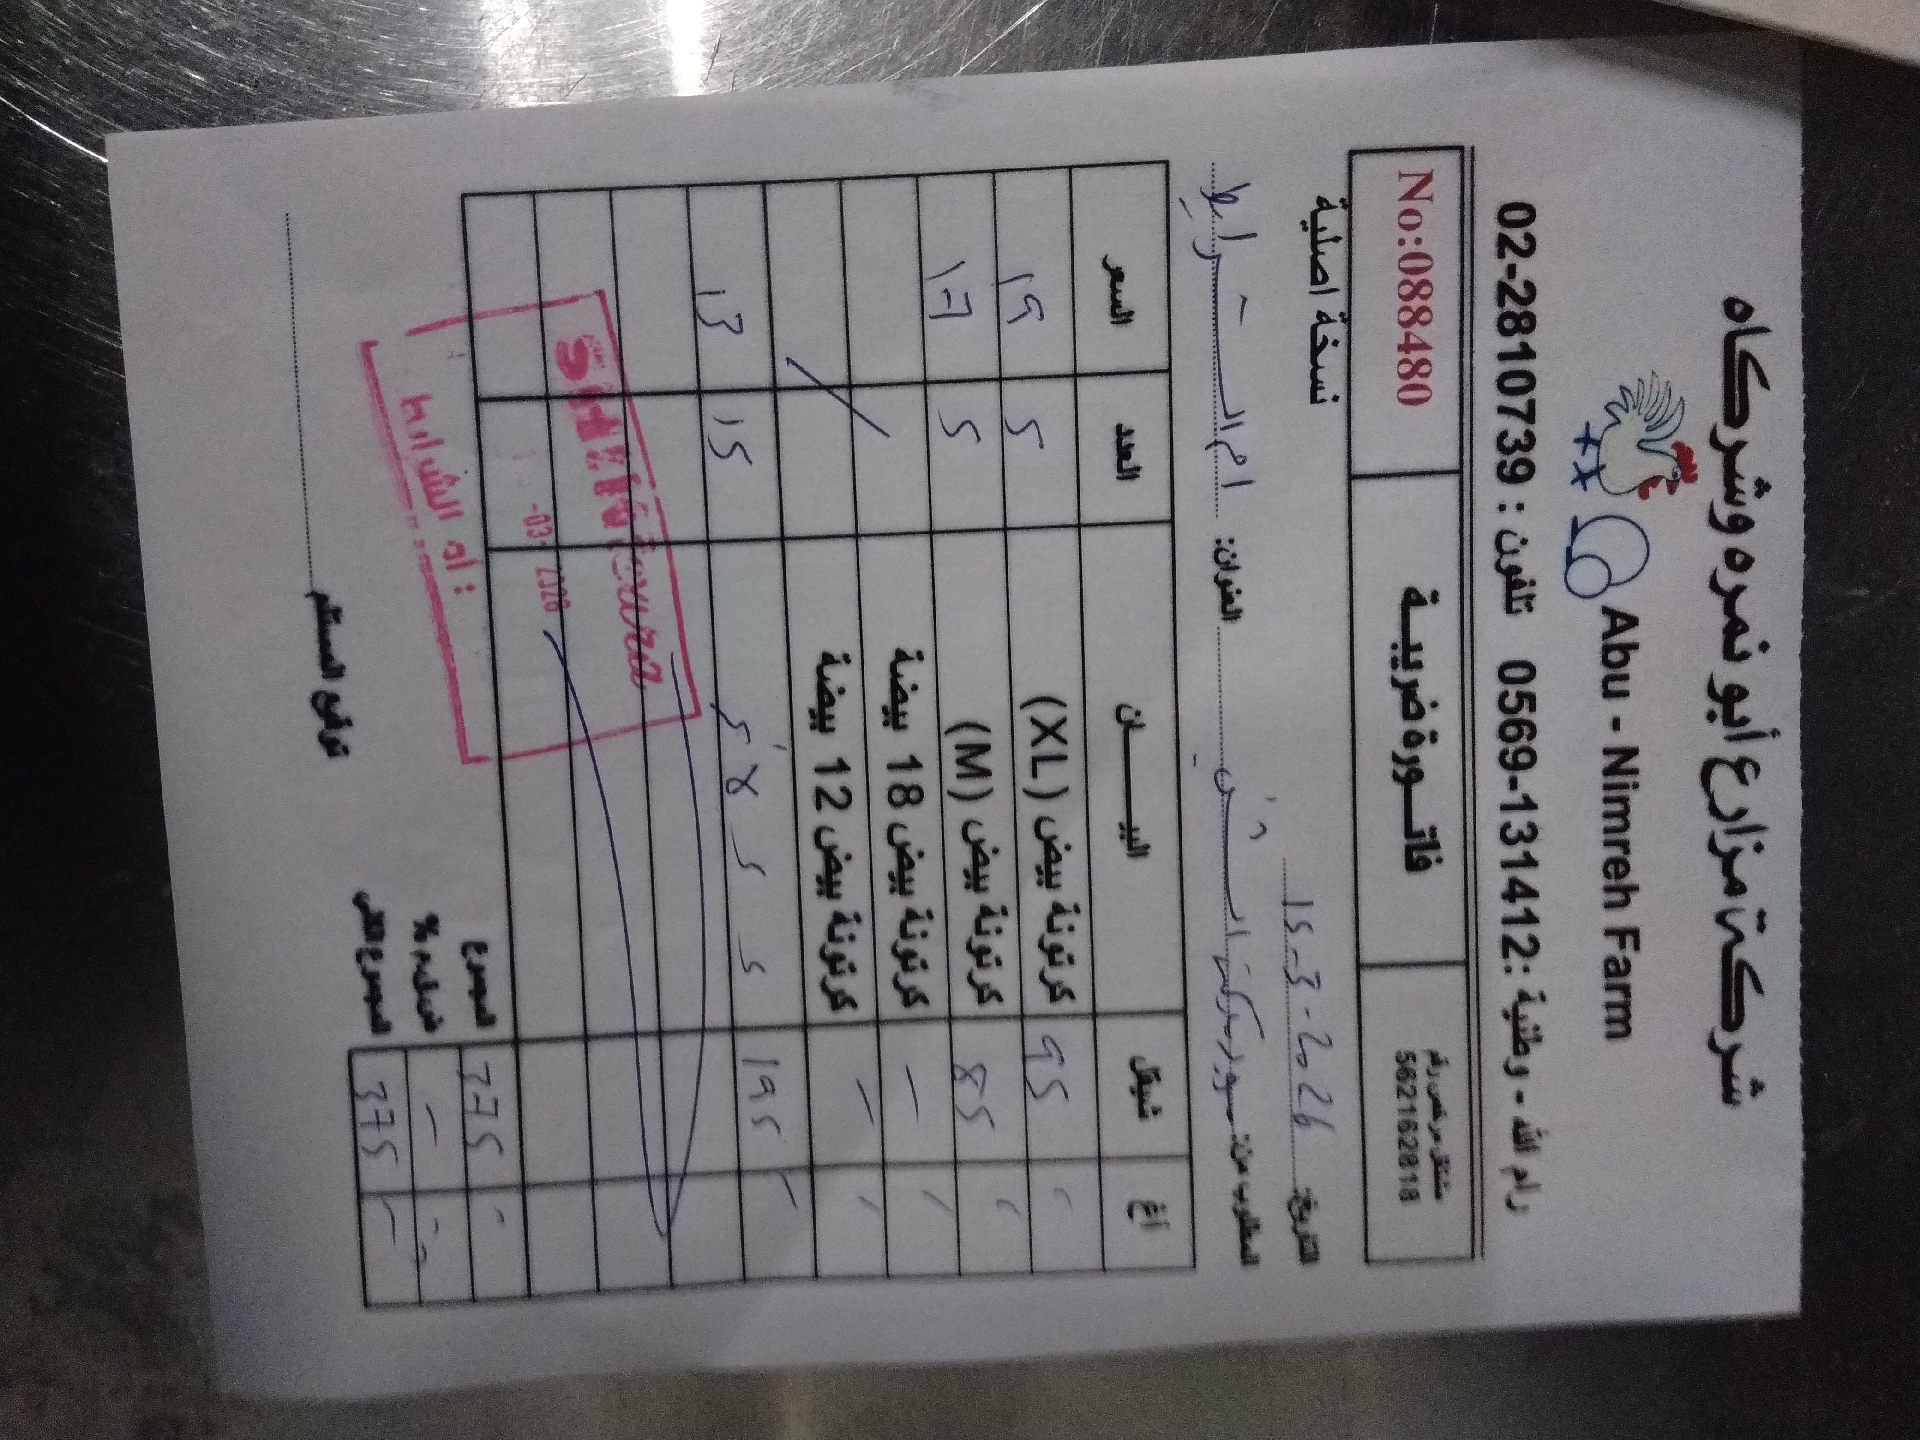 شركة مزارع أبو نمره وشركاه
Abu - Nimreh Farm
رام الله - وطنية : 0569-131412 تلفون : 02-2810739
مشتغل مرخص رقم
562162818
فاتــورة ضريبـــة
No:088480
التاريخ: 15-3-2026
نسخة اصلية
المطلوب من: سوبر ماركت العنوان: ام الشرايط
أغ شيقل البيـــــــان العدد السعر
95 كرتونة بيض (XL) 5 19
85 كرتونة بيض (M) 5 17
كرتونة بيض 18 بيضة
كرتونة بيض 12 بيضة
195 15 13
375 المجموع
ض.ق.م %
375 المجموع الكلي
ام الشرايط
توقيع المستلم